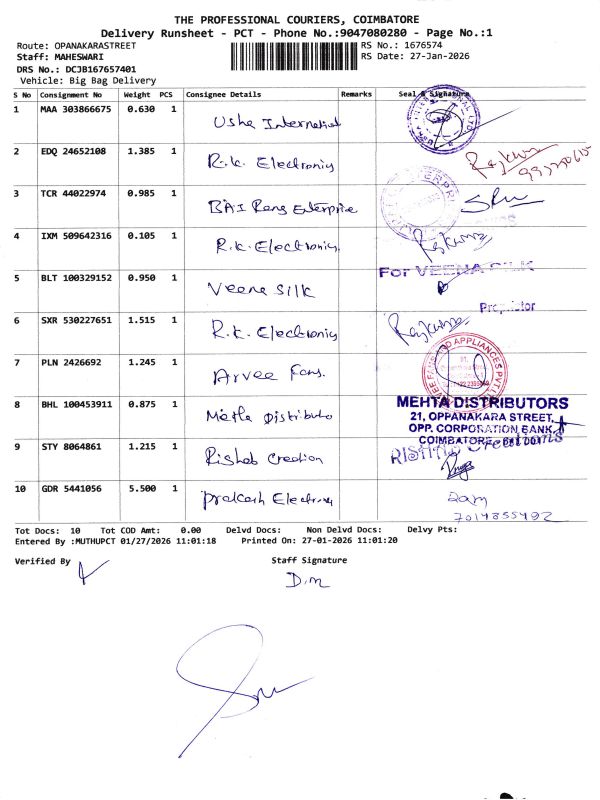 THE PROFESSIONAL COURIERS, COIMBATORE
Delivery Runsheet - PCT - Phone No.:9047080280 - Page No.:1
Route: OPANAKARASTREET
RS No.: 1676574
Staff: MAHESWARI
RS Date: 27-Jan-2026
DRS No.: DCJB167657401
Vehicle: Big Bag Delivery
S No Consignment No Weight PCS Consignee Details Remarks Seal & Signature
1 MAA 303866675 0.630 1 Usha Internatinl
2 EDQ 24652108 1.385 1 R.k. Electroniy
3 TCR 44022974 0.985 1 BAI Enterprise
4 IXM 509642316 0.105 1 R.k. Electroniy.
For VEENA SILK
5 BLT 100329152 0.950 1 Veena Silk
Proprietor
6 SXR 530227651 1.515 1 R.k. Electroniy
7 PLN 2426692 1.245 1 Arvee Fans.
8 BHL 100453911 0.875 1 Mehta Distributo
MEHTA DISTRIBUTORS
21, OPPANAKARA STREET,
OPP. CORPORATION BANK,
COIMBATORE- 641 001
9 STY 8064861 1.215 1 Rishab Creation
RISHAB Creations
10 GDR 5441056 5.500 1 Prakash Electroniy
7014855492
Tot Docs: 10 Tot COD Amt: 0.00 Delvd Docs: Non Delvd Docs: Delvy Pts:
Entered By :MUTHUPCT 01/27/2026 11:01:18 Printed On: 27-01-2026 11:01:20
Verified By Staff Signature
D.M